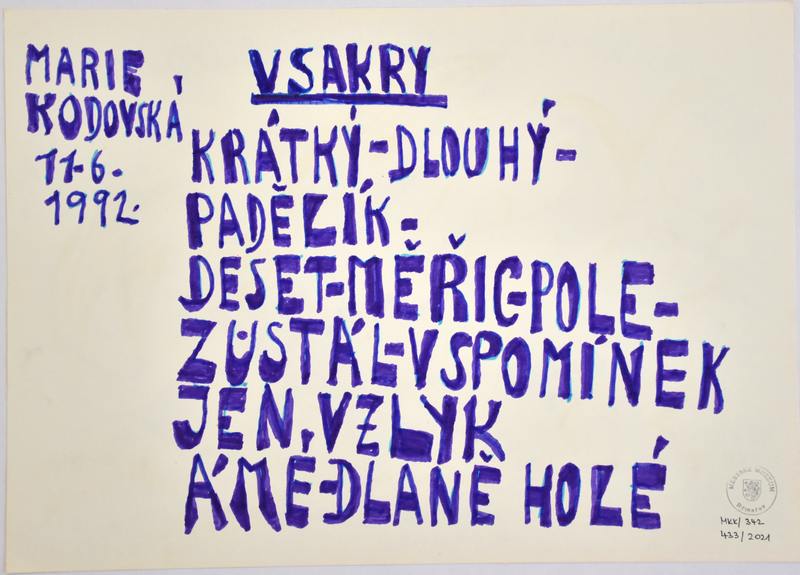 MARIE
KODOVSKÁ
11.6.
1992.
VSAKRY
KRÁTKÝ-DLOUHÝ-
PADĚLÍK-
DESET-MĚŘIC-POLE-
ZŮSTÁL-VSPOMÍNEK
JEN, VZLYK
Á MÉ-DLANĚ HOLÉ
MĚSTSKÉ MUZEUM
MKK/342
433/2021